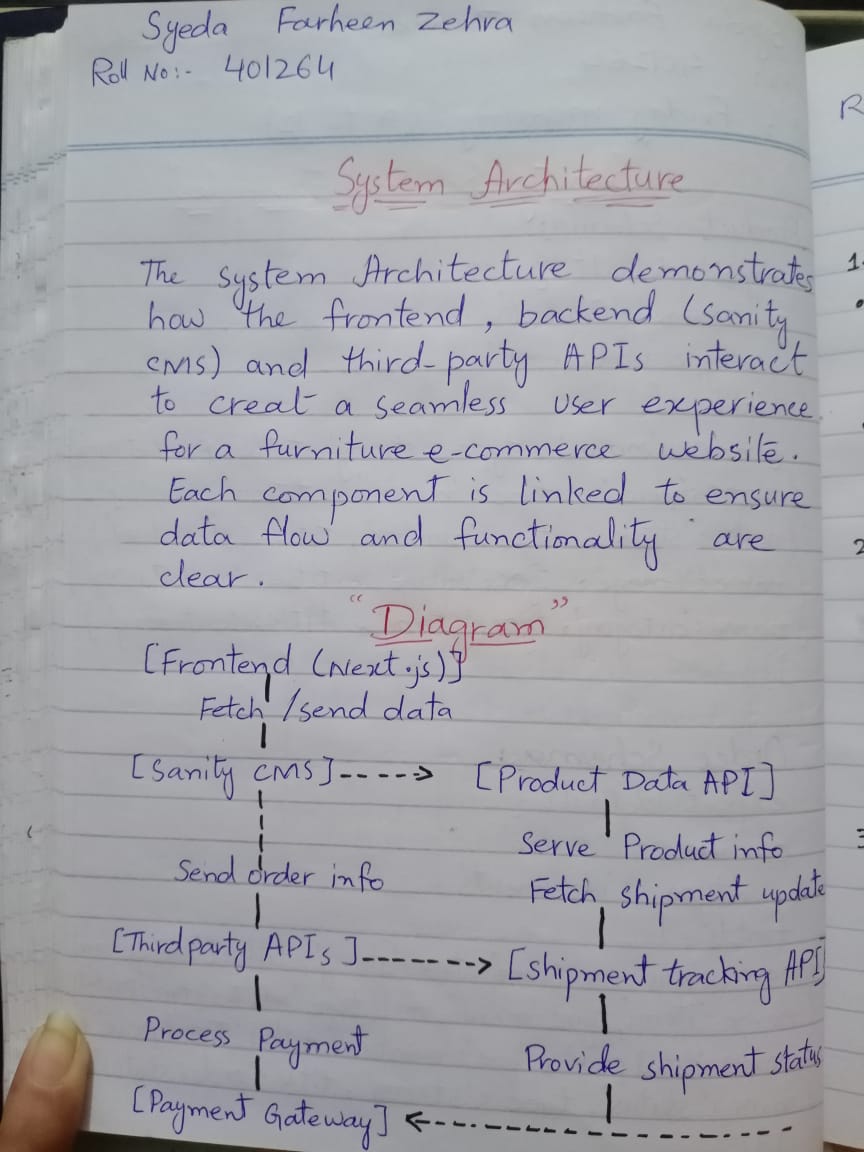 Syeda Farheen Zehra
Roll No:- 401264
System Architecture
The system Architecture demonstrates
how the frontend, backend (sanity
CMS) and third-party APIs interact
to creat a seamless user experience
for a furniture e-commerce website.
Each component is linked to ensure
data flow and functionality are
clear.
"Diagram"
[Frontend (Next.js)]
Fetch/send data
[Sanity CMS]-----> [Product Data API]
Serve Product info
Send order info
Fetch shipment update
[Third party APIs]-------> [shipment tracking API]
Process Payment
Provide shipment status
[Payment Gateway] <--------------
R
1.
2
3